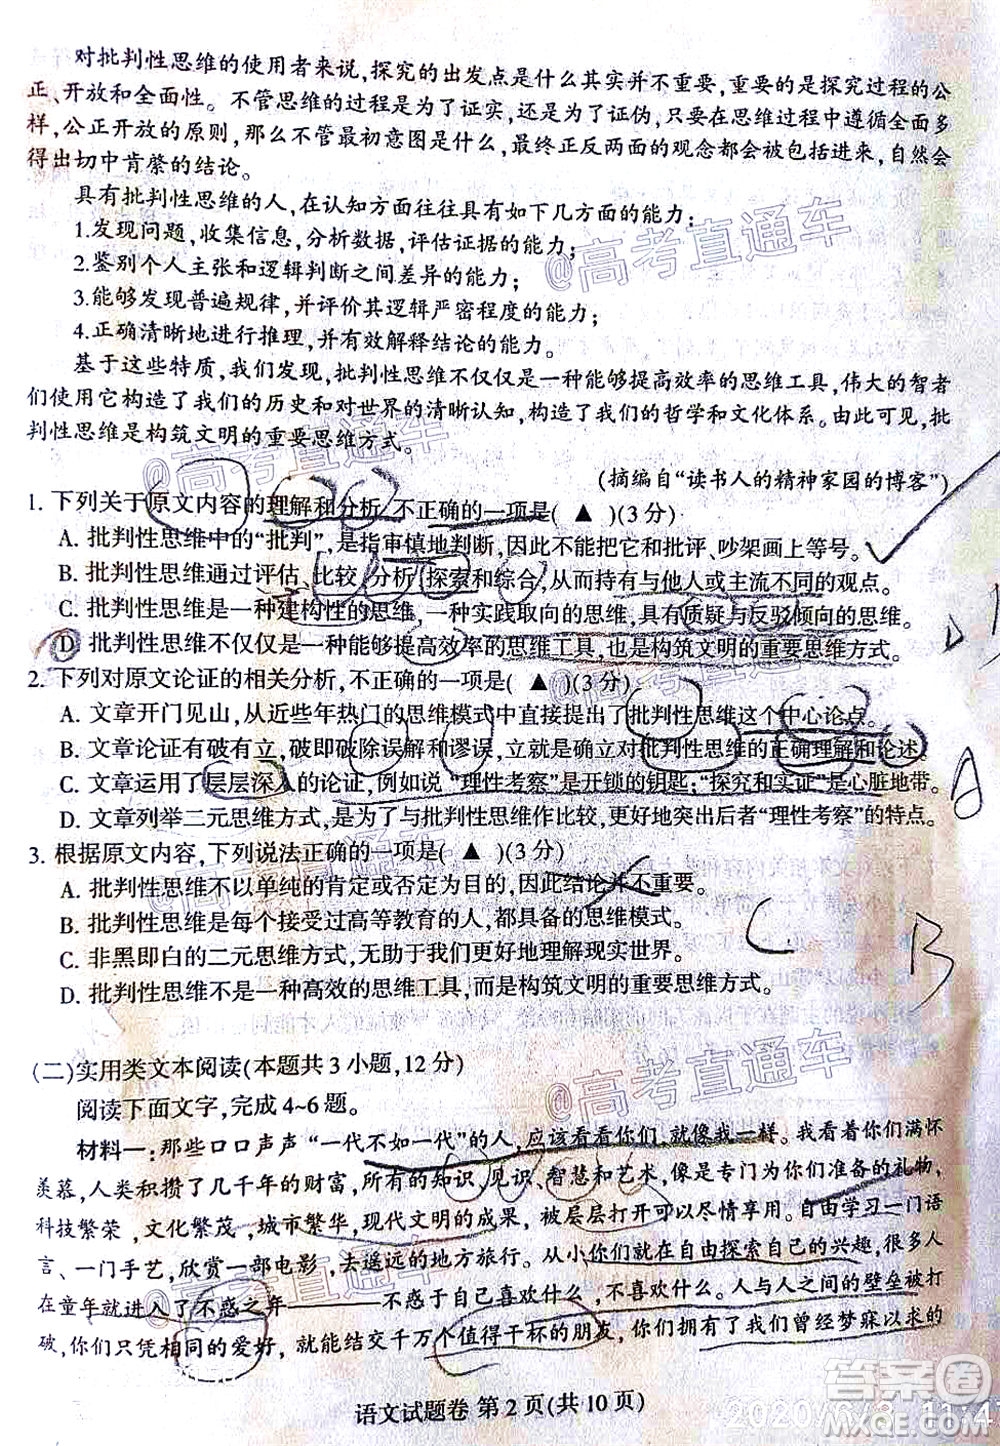 对批判性思维的使用者来说,探究的出发点是什么其实并不重要,重要的是探究过程的公
正、开放和全面性。不管思维的过程是为了证实,还是为了证伪,只要在思维过程中遵循全面多
样,公正开放的原则,那么不管最初意图是什么,最终正反两面的观念都会被包括进来,自然会
得出切中肯綮的结论。
具有批判性思维的人,在认知方面往往具有如下几方面的能力:
1.发现问题,收集信息,分析数据,评估证据的能力;
2.鉴别个人主张和逻辑判断之间差异的能力;
3.能够发现普遍规律,并评价其逻辑严密程度的能力;
4.正确清晰地进行推理,并有效解释结论的能力。
基于这些特质,我们发现,批判性思维不仅仅是一种能够提高效率的思维工具,伟大的智者
们使用它构造了我们的历史和对世界的清晰认知,创造了我们的哲学和文化体系。由此可见,批
判性思维是构筑文明的重要思维方式。
(摘编自“读书人的精神家园的博客”)
1. 下列关于原文内容的理解和分析,不正确的一项是( ▲ )(3分)
A. 批判性思维中的“批判”,是指审慎地判断,因此不能把它和批评、吵架画上等号。
B. 批判性思维通过评估、比较、分析、探索和综合,从而持有与他人或主流不同的观点。
C. 批判性思维是一种建构性的思维,一种实践取向的思维,具有质疑与反驳倾向的思维。
D. 批判性思维不仅仅是一种能够提高效率的思维工具,也是构筑文明的重要思维方式。
2. 下列对原文论证的相关分析,不正确的一项是( ▲ )(3分)
A. 文章开门见山,从近些年热门的思维模式中直接提出了批判性思维这个中心论点。
B. 文章论证有破有立,破即破除误解和谬误,立就是确立对批判性思维的正确理解和论述。
C. 文章运用了层层深入的论证,例如说“理性考察”是开锁的钥匙;“探究和实证”是心脏地带。
D. 文章列举二元思维方式,是为了与批判性思维作比较,更好地突出后者“理性考察”的特点。
3. 根据原文内容,下列说法正确的一项是( ▲ )(3分)
A. 批判性思维不以单纯的肯定或否定为目的,因此结论并不重要。
B. 批判性思维是每个接受过高等教育的人,都具备的思维模式。
C. 非黑即白的二元思维方式,无助于我们更好地理解现实世界。
D. 批判性思维不是一种高效的思维工具,而是构筑文明的重要思维方式。
D
A
C
B
(二)实用类文本阅读(本题共3小题,12分)
阅读下面文字,完成4~6题。
材料一:那些口口声声“一代不如一代”的人,应该看看你们,就像我一样。我看着你们满怀
羡慕,人类积攒了几千年的财富,所有的知识、见识、智慧和艺术,像是专门为你们准备的礼物,
科技繁荣,文化繁茂,城市繁华,现代文明的成果,被层层打开可以尽情享用。自由学习一门语
言、一门手艺,欣赏一部电影,去遥远的地方旅行。从小你们就在自由探索自己的兴趣,很多人
在童年就进入了不惑之年————不惑于自己喜欢什么,不喜欢什么。人与人之间的壁垒被打
破,你们只凭相同的爱好,就能结交千万个值得干杯的朋友,你们拥有了我们曾经梦寐以求的
语文试题卷 第2页(共10页)
@高考直通车
@高考直通车
@高考直通车
@高考直通车
@高考直通车
@高考直通车
答案圈